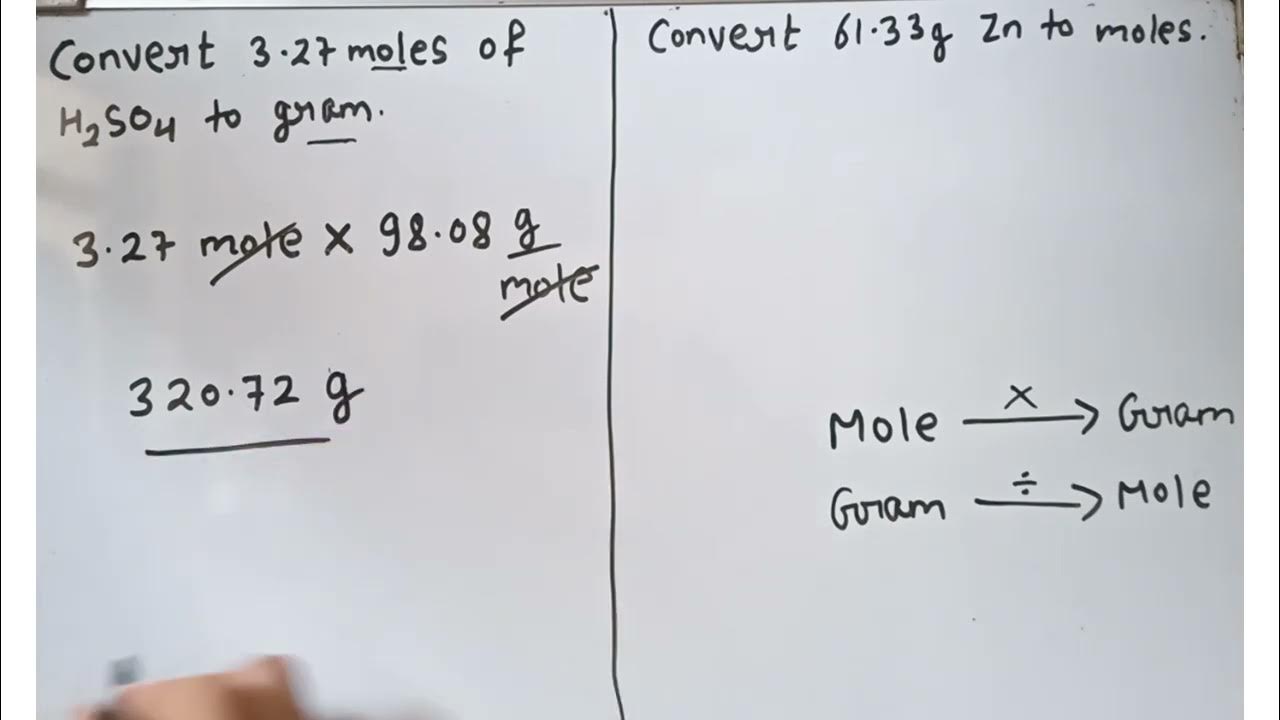 Convert 3.27 moles of
H₂SO₄ to gram.
3.27 mole × 98.08 g
mole
320.72 g
Convert 61.33g Zn to moles.
×
Mole → Gram
÷
Gram → Mole